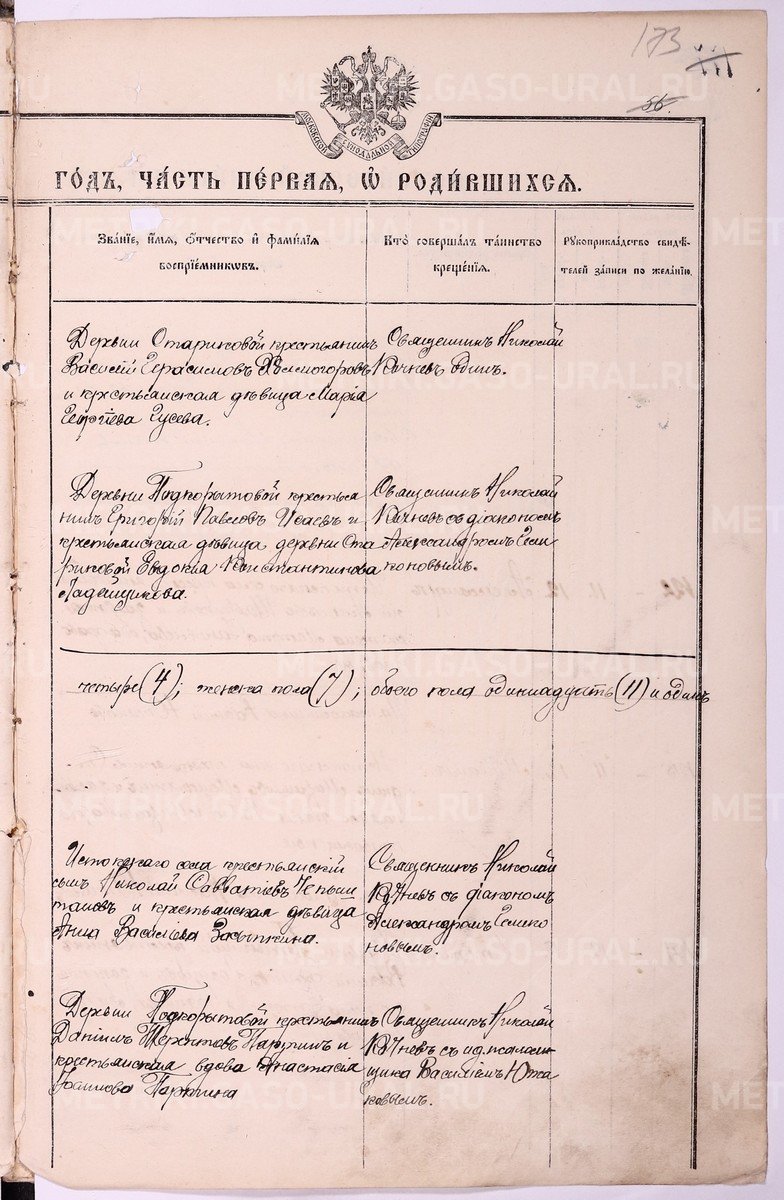 173
56.
МОСКОВСКОЙ СѴНОДАЛЬНОЙ ТИПОГРАФІИ
ГО́ДЪ, ЧА́СТЬ ПЕ́РВАЯ, Ѡ҆ РОДИ́ВШИХСЯ.
Зва́нїе, и҆́мя, ѻ҆́тчество и҆ фами́лїя
воспрїе́мникѡвъ.
Кто̀ соверша́лъ та́инство
креще́нїя.
Рꙋкоприкла́дство свидѣ́-
телей за́писи по жела́нїю.
Деревни Стариковой крестьянинъ
Василій Герасимовъ Холмогоровъ
и крестьянская дѣвица Марія
Георгіева Гусева.
Священникъ Николай
одинъ.
Деревни Подкорытовой крестья
нинъ Григорій Павловъ и
крестьянская дѣвица деревни Ста
риковой Евдокія Константинова
Ладейщикова.
Священникъ Николай
съ діакономъ
Александромъ
четыре (4); женска пола (7); обоего пола одиннадцать (11) и одинъ
Истокскаго села крестьянскій
сынъ Николай Савватіевъ Чепыш
тановъ и крестьянская дѣвица
Анна Васильева Засыпкина.
Священникъ Николай
съ діакономъ
Александромъ
Деревни Подкорытовой крестьянинъ
Даніилъ Терентьевъ и
крестьянская вдова Анастасія
Іоаннова
Священникъ Николай
съ и.д. псалом
щика Василіемъ Южа
ковымъ.
METRIKI.GASO-URAL.RU